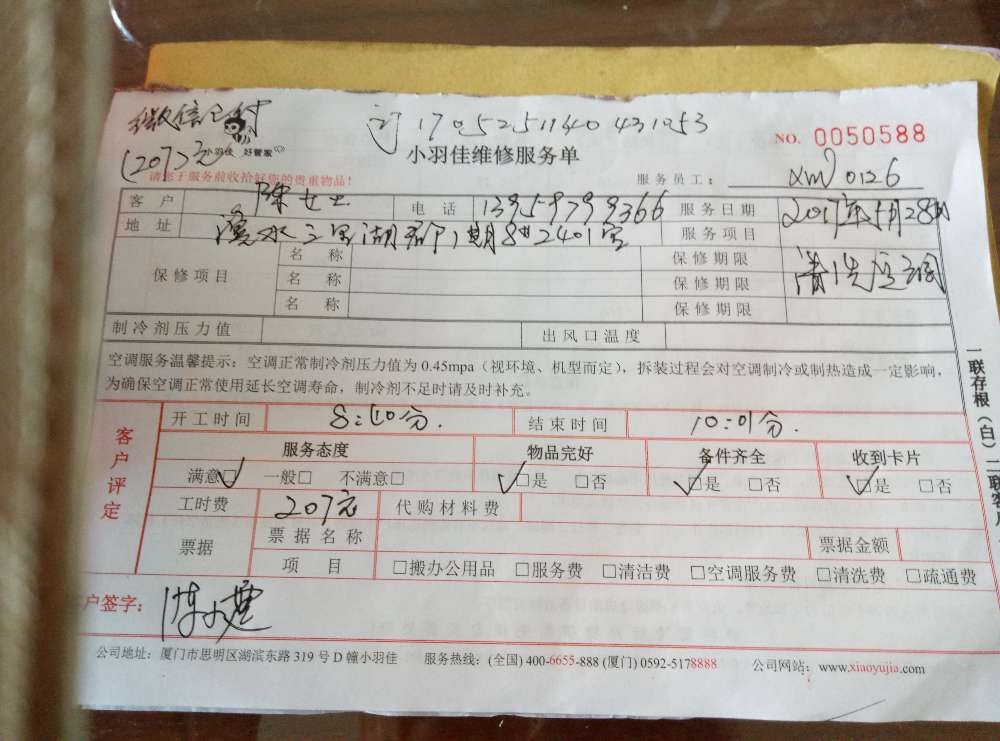 微信已付 订 170525511640431053 NO. 0050588
(207)元 小羽佳 好管家 小羽佳维修服务单
请您于服务前收拾好您的贵重物品! 服务员工: xm0126
客 户 陈女士 电 话 13959799366 服务日期 2017年5月28日
地 址 三里湖 1期8#2401室 服务项目 清洗空调
保修项目 名 称 保修期限
名 称 保修期限
名 称 保修期限
制冷剂压力值 出风口温度
空调服务温馨提示:空调正常制冷剂压力值为 0.45mpa(视环境、机型而定),拆装过程会对空调制冷或制热造成一定影响,
为确保空调正常使用延长空调寿命,制冷剂不足时请及时补充。
客户评定 开工时间 8:10分. 结束时间 10:01分.
服务态度 物品完好 备件齐全 收到卡片
满意□ 一般□ 不满意□ □是 □否 □是 □否 □是 □否
工时费 207元 代购材料费
票据 票据名称 票据金额
项 目 □搬办公用品 □服务费 □清洁费 □空调服务费 □清洗费 □疏通费
户签字:
公司地址:厦门市思明区湖滨东路 319 号 D 幢小羽佳 服务热线:(全国) 400-6655-888 (厦门) 0592-5178888 公司网站:www.xiaoyujia.com
一联存根(白)二联客户